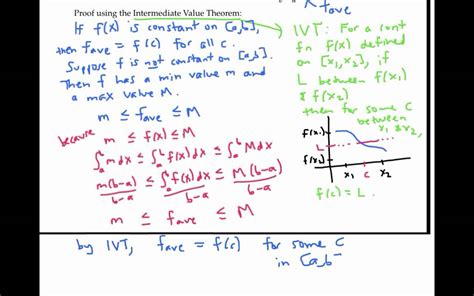 Proof using the Intermediate Value Theorem:
If f(x) is constant on [a,b],
then fave = f(c) for all c.
Suppose f is not constant on [a,b].
Then f has a min value m and
a max value M.
m ≤ fave ≤ M
because m ≤ f(x) ≤ M
∫ₐᵇ m dx ≤ ∫ₐᵇ f(x) dx ≤ ∫ₐᵇ M dx
m(b-a)/b-a ≤ ∫ₐᵇ f(x) dx/b-a ≤ M(b-a)/b-a
m ≤ fave ≤ M
by IVT, fave = f(c) for some c
in [a,b
fave
IVT: For a cont
fn f(x) defined
on [x₁,x₂], if
L between f(x₁)
& f(x₂)
then for some c
between
x₁ & x₂,
f(x₁)
L
f(x₂)
x₁ c x₂
f(c) = L.